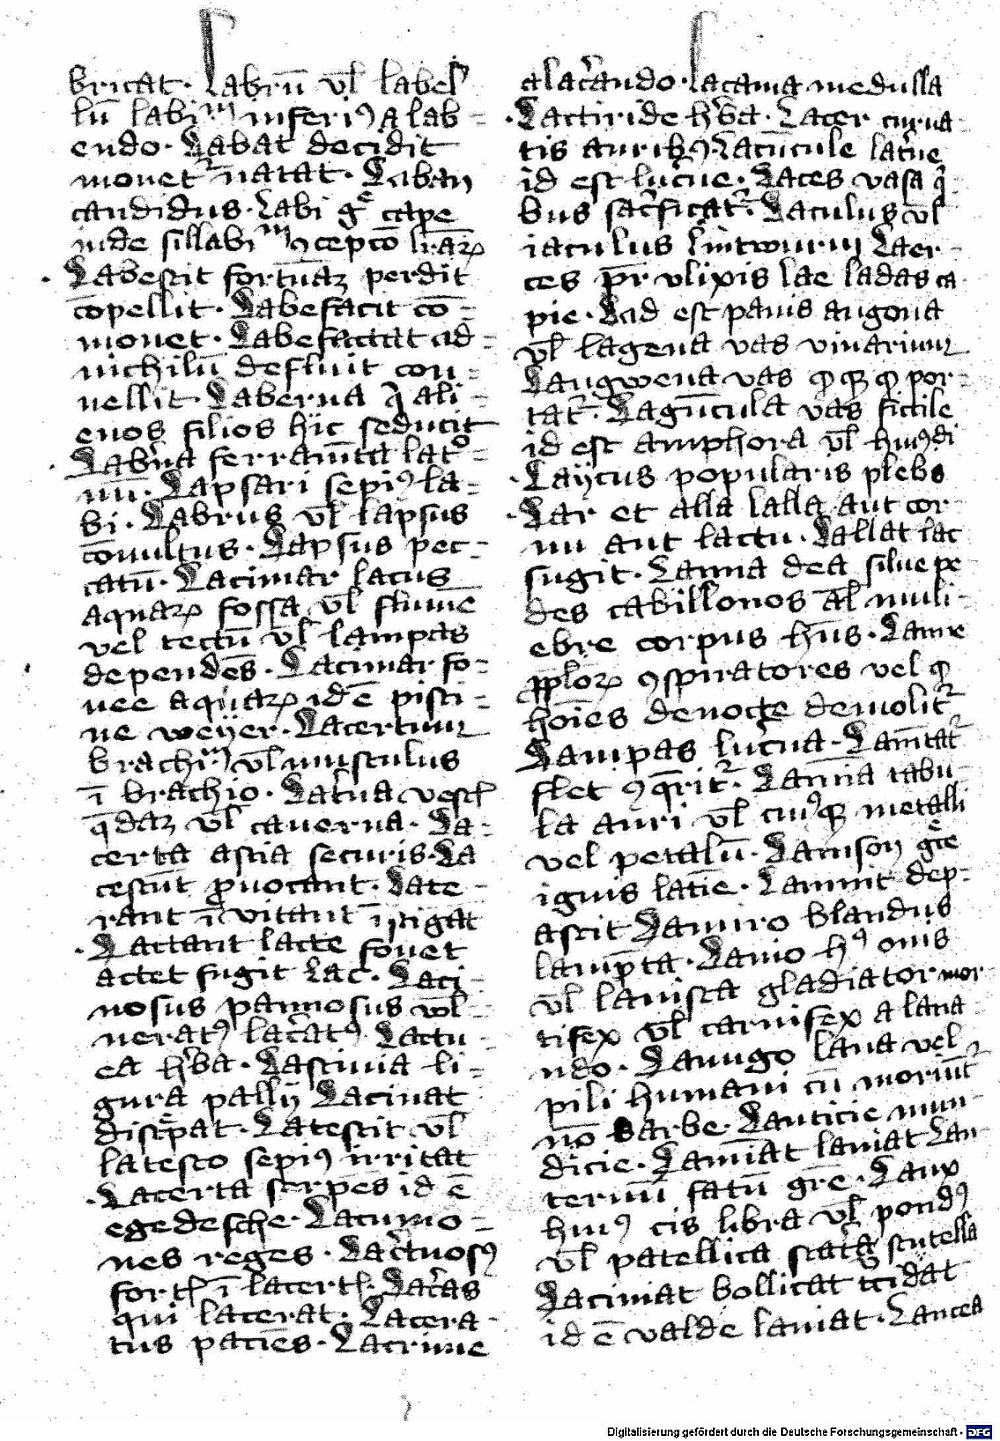 bricat · Labrū vl̄ label
lū labiᵐ inferiꝰ a lab
endo · Labat decidit
mouet nutat · Laban
candidus · Labi gͤ cape
inde sillabiᵐ ꝯcepto lrāꝝ
Labescit fortunaꝫ perdit
cōpellit · Labefacit cō
mouet · Labefactat ad
nichilū defluit con
uellit · Laberna q̄ ali
enos filios hic seducit
Labrīa ferramēta lat
nū · Lapsari sepiꝰ la
bi · Labrus vl̄ lapsus
cōuultus · Lapsus pec
catū · Lacunar lacus
aquaꝝ fossa vl̄ flumē
vel tectū vl̄ lampas
dependēs · Lacunar fo
uee aquaꝝ id ē pisci
ne weyer · Lacertum
brachiᵐ vl̄ musculus
ī brachio · Latīna
q̄daꝫ vl̄ cauerna · La
certa ascia securis · La
cescūt ꝓuocant · Late
rant ī vitant īstigāt
Lactant lacte fouet
actet sugit lac · Laci
nosus pannosus vl
neratꝰ lac̄atꝰ Lactu
ca hr̄ba · Lascinia li
gura pallij Lacinat
discͤpat · Latescit vl̄
latesco sepiꝰ irritat
Lacerta serpēs id ē
egedesche · Lacumo
nes reges · Lac̄tuosꝰ
fort ī lacert · Lac̄as
qui lacerat · Lacera
tus paciēs · Lacrime
a lac̄ando · lacama medulla
Lactiride hr̄ba · Lacer curua
tis auribꝰ · Lacūcule lac̄ne
id est lucne · Laces vasa q̄
bus sac̄ficat · Laculus vl̄
iaculus lintworm Laer
ces pr̄ vlixis lae ladas ca
pie · Lad est panis angona
vl̄ lagena vas vinarium
Langwena vas
tat · Lagūcula vas fictile
id est amphora vl̄ huiꝰdi
Laycus popularis plebs
Lar et alla lalla aut cor
nu aut lactu · Lallat lac
sugit · Lanna dea silue pe
des cabillonos al̄ muli
ebre corpus hn̄s · Lamie
pplōꝝ ꝯspiratores vel
hoīes de nocte demolit
Lampas luc̄na · Lamītat
flet ꝯq̄rit · Lannia tabu
la auri vl̄ cuiꝰꝙ metalli
vel petalū · Lamson gͤce
ignis latie · Lammit dep
ascit Lamiro blandus
lampta · Lanio hꝰ onis
vl̄ lanista gladiator mor
tifex vl̄ carnifex a lania
ndo · Lanugo lana vel
pili humani cū moriūt
nō barbe · Lauticie mun
dicie · Laniat laniat Lan
ternū fatū grē · Lanx
huiꝰ cis libra vl̄ pondꝰ
vl̄ patellica scutella
Laciniat bollicat
id ē valde laniat · Lancea
Digitalisierung gefördert durch die Deutsche Forschungsgemeinschaft - DFG